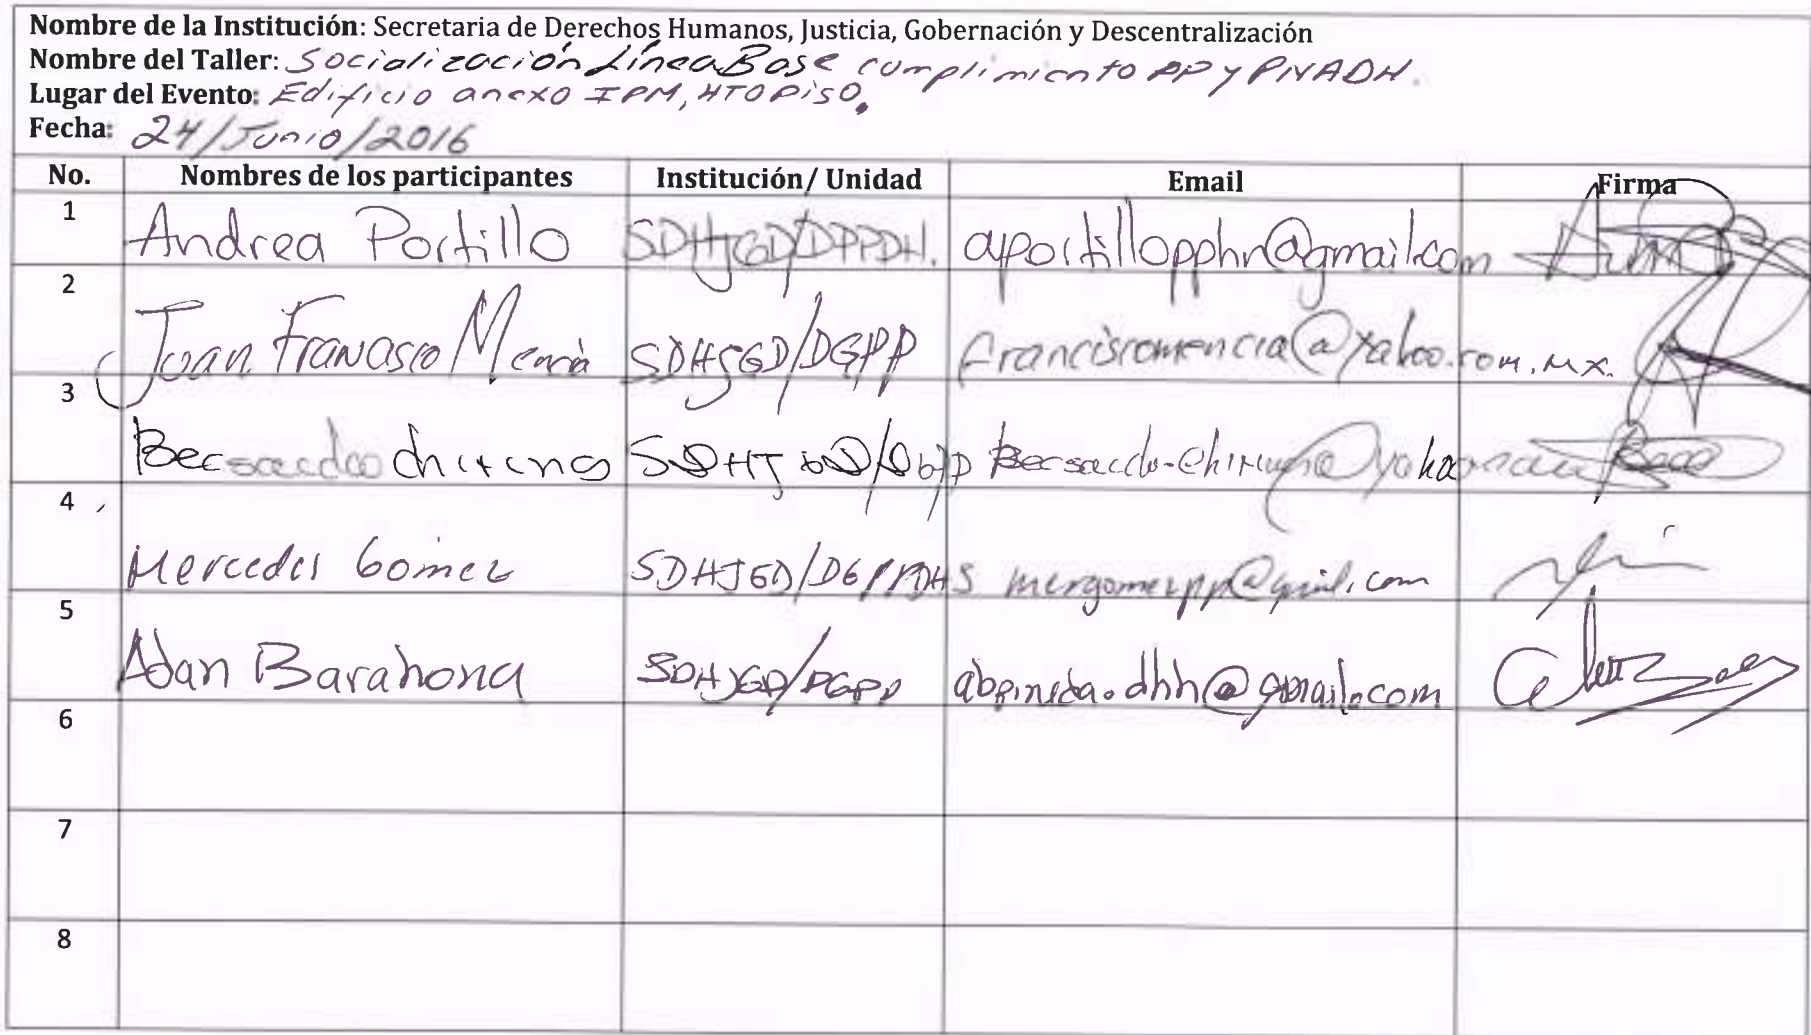 Nombre de la Institución: Secretaria de Derechos Humanos, Justicia, Gobernación y Descentralización
Nombre del Taller: Socialización Línea Base cumplimiento PP y PNADH.
Lugar del Evento: Edificio anexo IPM, 4TO PISO.
Fecha: 24/Junio/2016
No. Nombres de los participantes Institución/ Unidad Email Firma
1 Andrea Portillo SDHJGD/DPPDH. aportillopphn@gmail.com
2 Juan Francisco Mencía SDHJGD/DGPP franciscomencia@yahoo.com.mx.
3
4 Mercedes Gómez mergomezpp@gmail.com
5 Adan Barahona SDHJGD/DGPP abpineda.dhh@gmail.com
6
7
8